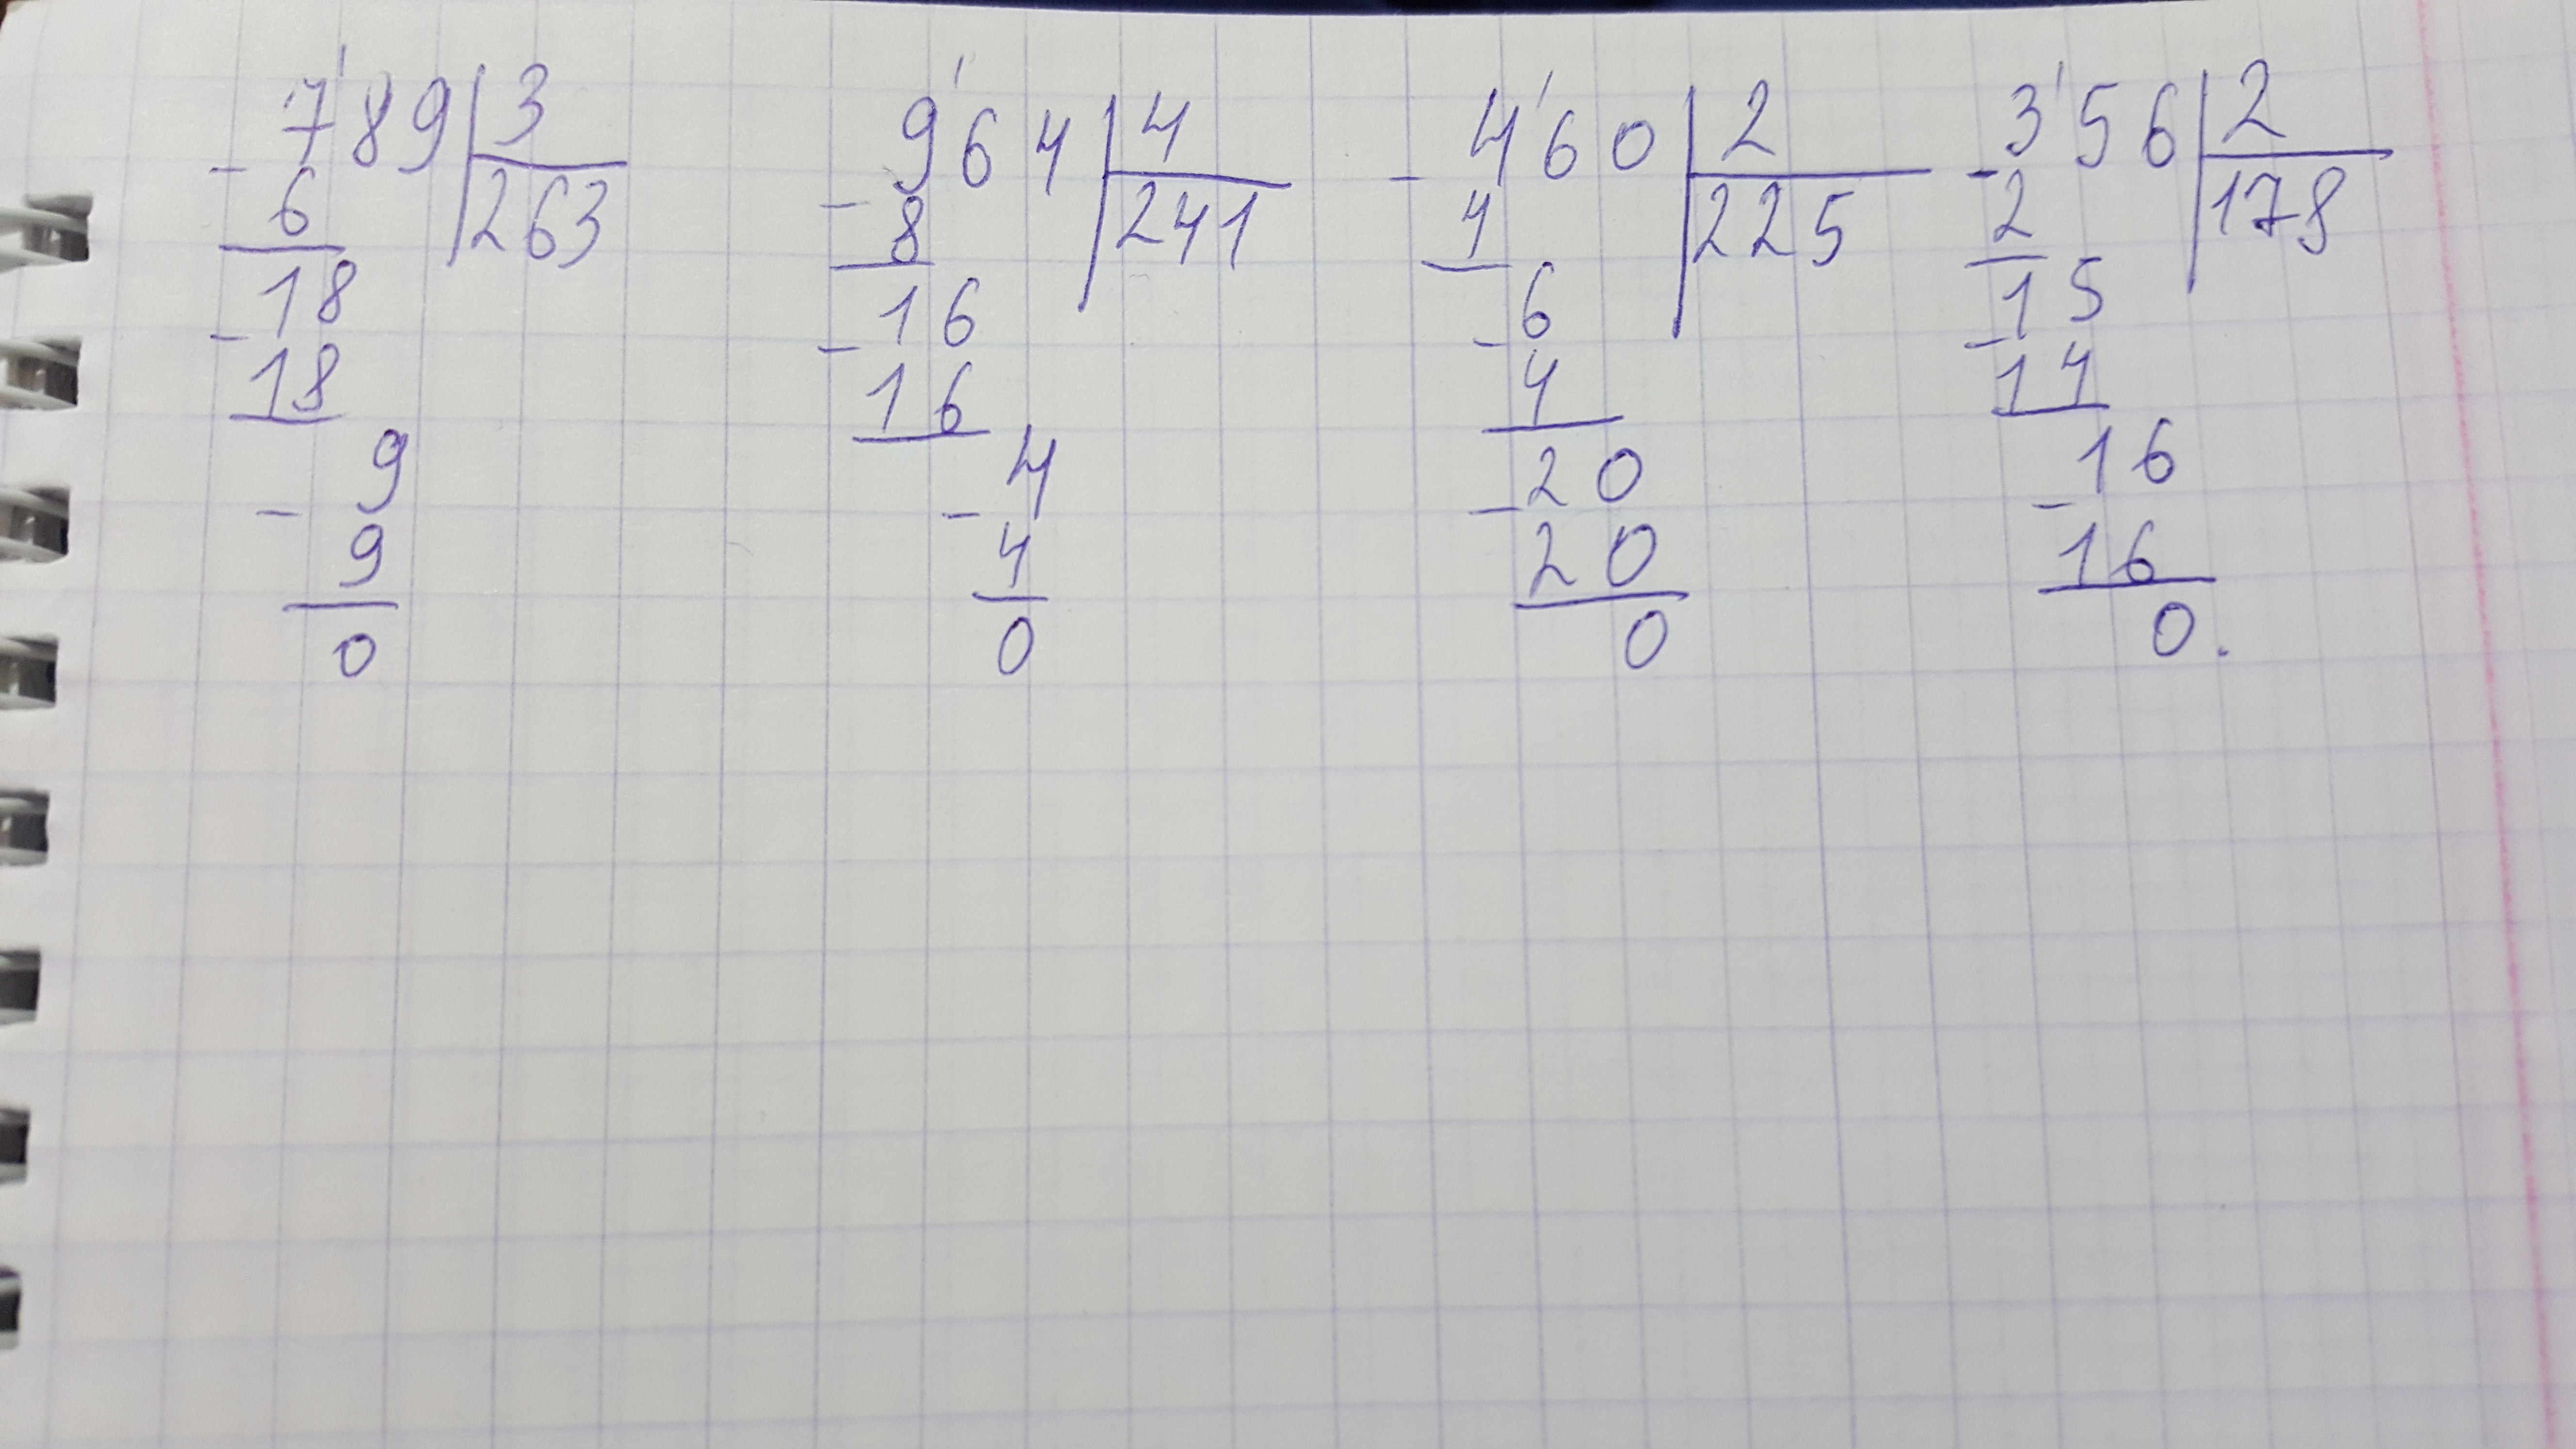 789 | 3    964 | 4    460 | 2    356 | 2
- 6 | 263    - 8 | 241    - 4 | 225    - 2 | 178
18    16    6    15
- 18    - 16    - 4    - 14
9    4    20    16
- 9    - 4    - 20    - 16
0    0    0    0.